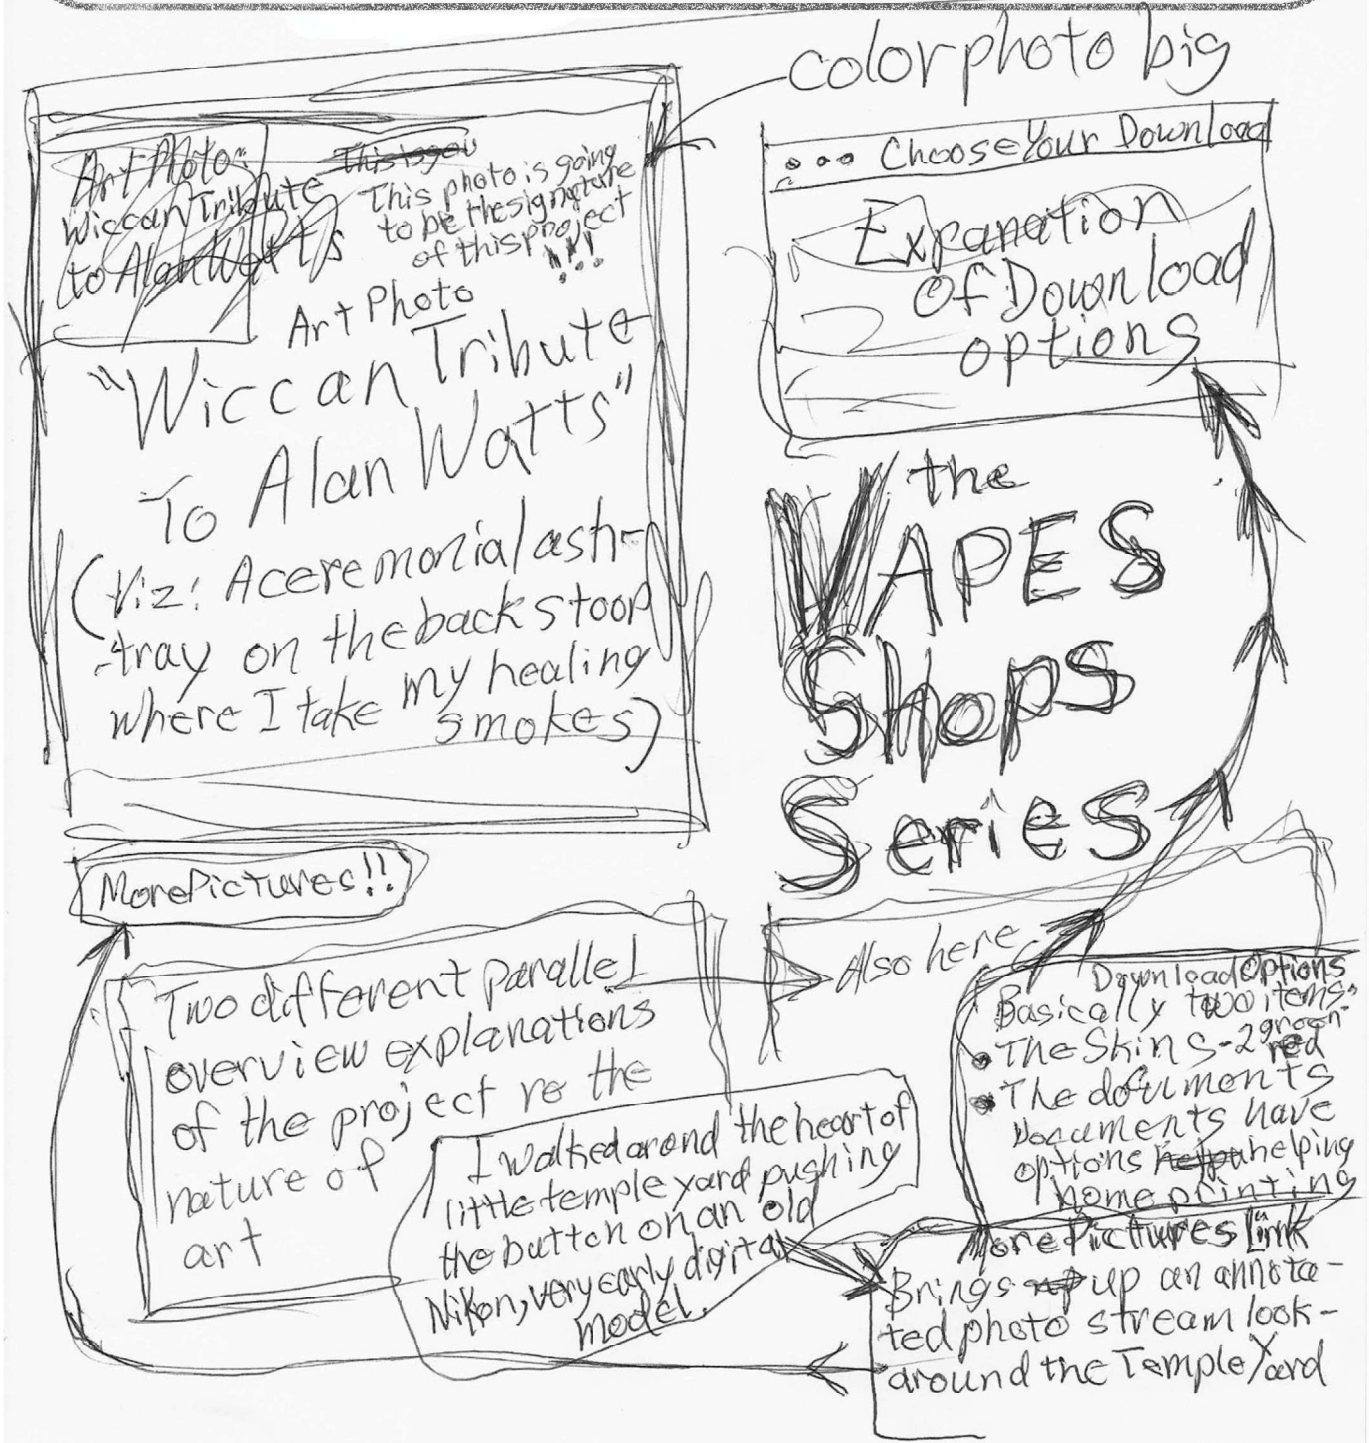 color photo big
Art Photo:
Wiccan Tribute
to Alan Watts
This is gou
This photo is going
to be the signature
of this project
!!!
Art Photo
"Wiccan Tribute
To Alan Watts"
(Viz: A ceremonial ash-
-tray on the back stoop
where I take my healing
smokes)
More Pictures!!
Choose Your Download
Expanation
Of Download
options
the
VAPES
Shops
Series
Two different parallel
overview explanations
of the project re the
nature of
art
Also here
I walked arond the heart of
little temple yard pushing
the button on an old
Nikon, very early digital
model.
Download Options
Basically two items:
• The Skins - 2 green
red
• The documents
Documents have
options helping
home printing
More Pictures Link
Brings up an annota-
ted photo stream look-
around the Temple Yard